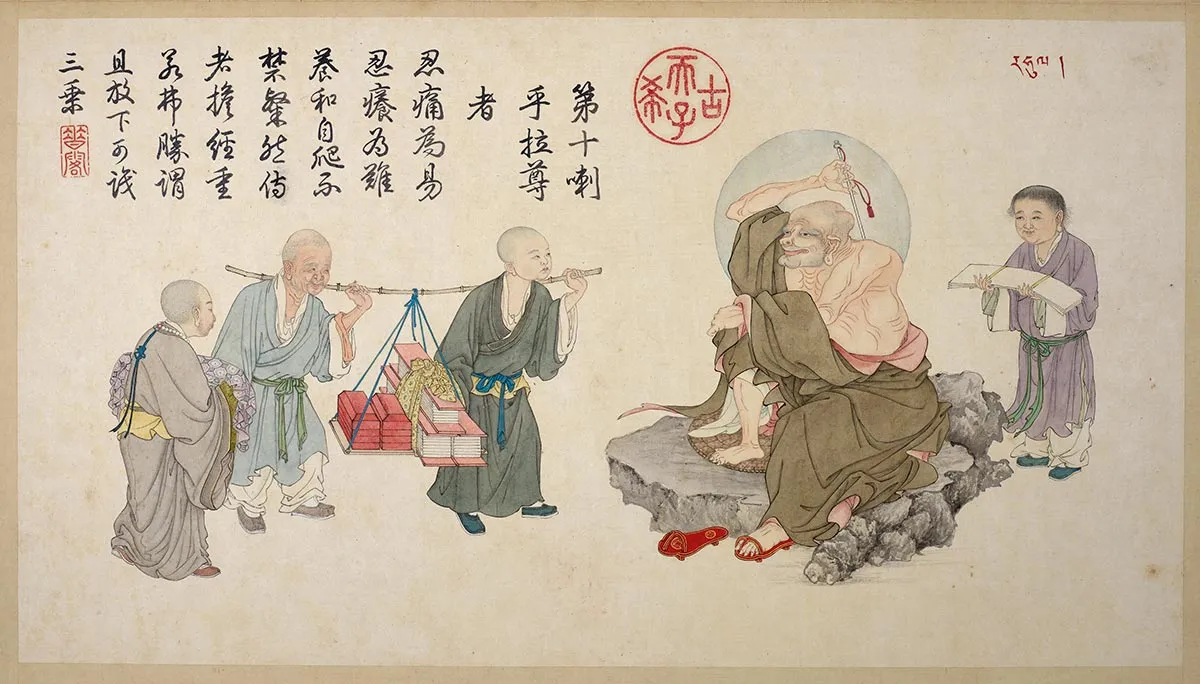 ར་ཧུ་ལ །
古希天子
第十喇
乎拉尊
者
忍痛為易
忍癢為難
養和自爬不
禁粲然侍
者擔經重
若弗勝謂
且放下可識
三乗